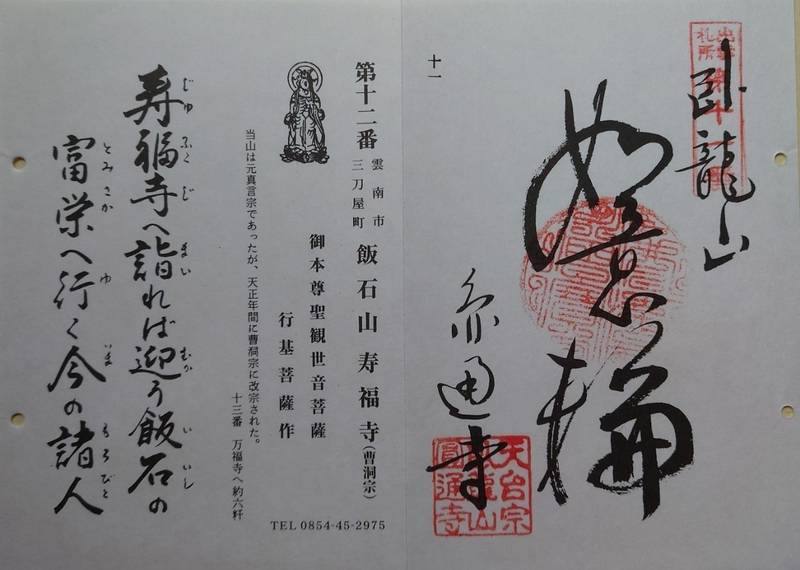 札所
臥龍山
如意輪
圓通寺
天台宗
臥龍山
圓通寺
十一
第十二番 雲南市三刀屋町 飯石山寿福寺(曹洞宗)
御本尊聖観世音菩薩
行基菩薩作
当山は元真言宗であったが、天正年間に曹洞宗に改宗された。
十三番 万福寺へ約六粁
TEL 0854-45-2975
寿福寺へ詣れば迎う飯石の
じゅ ふく じ まい むか いい いし
富栄へ行く今の諸人
とみ さか ゆ いま もろ びと